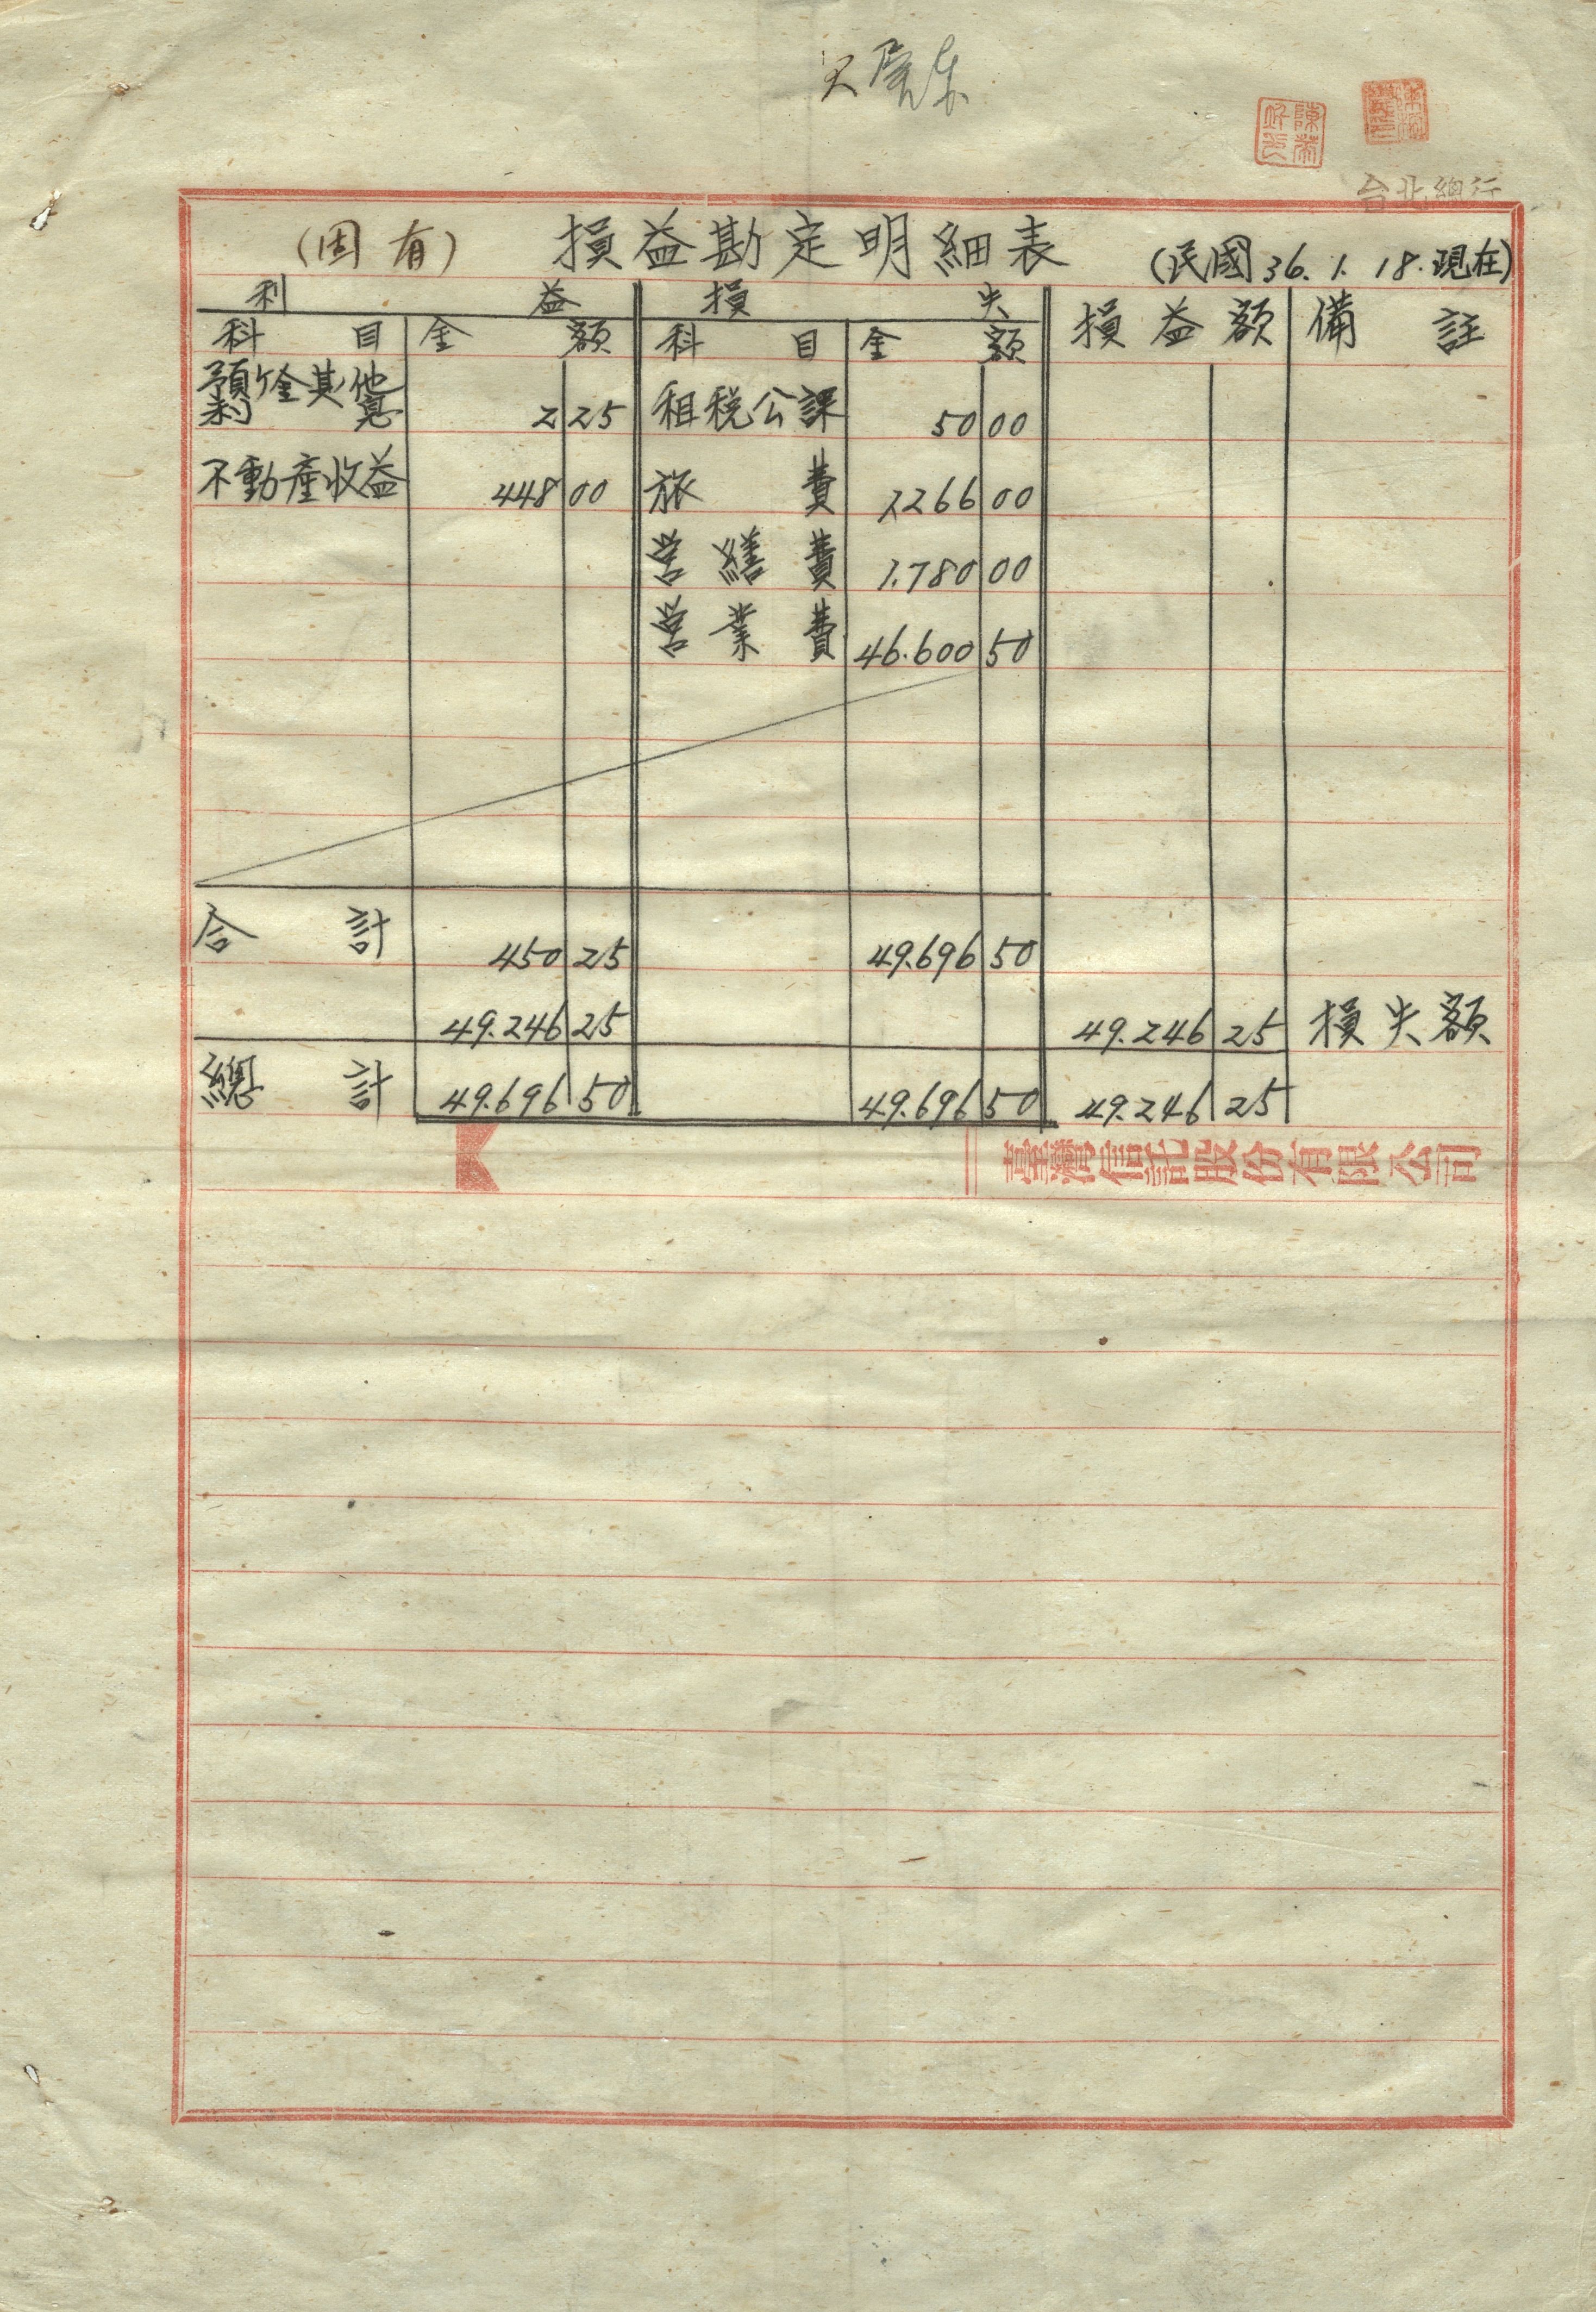 台北總行
(固有) 損益勘定明細表 (民國36.1.18.現在)
利益 損失 損益額 備註
科目 金額 科目 金額
預ケ金其他
利息 2 25 租税公課 50 00
不動產收益 448 00 旅費 1,266 00
営繕費 1.780 00
営業費 46.600 50
合計 450 25 49.696 50
49.246 25 49.246 25 損失額
總計 49.696 50 49.696 50 49.246 25
臺灣信託股份有限公司